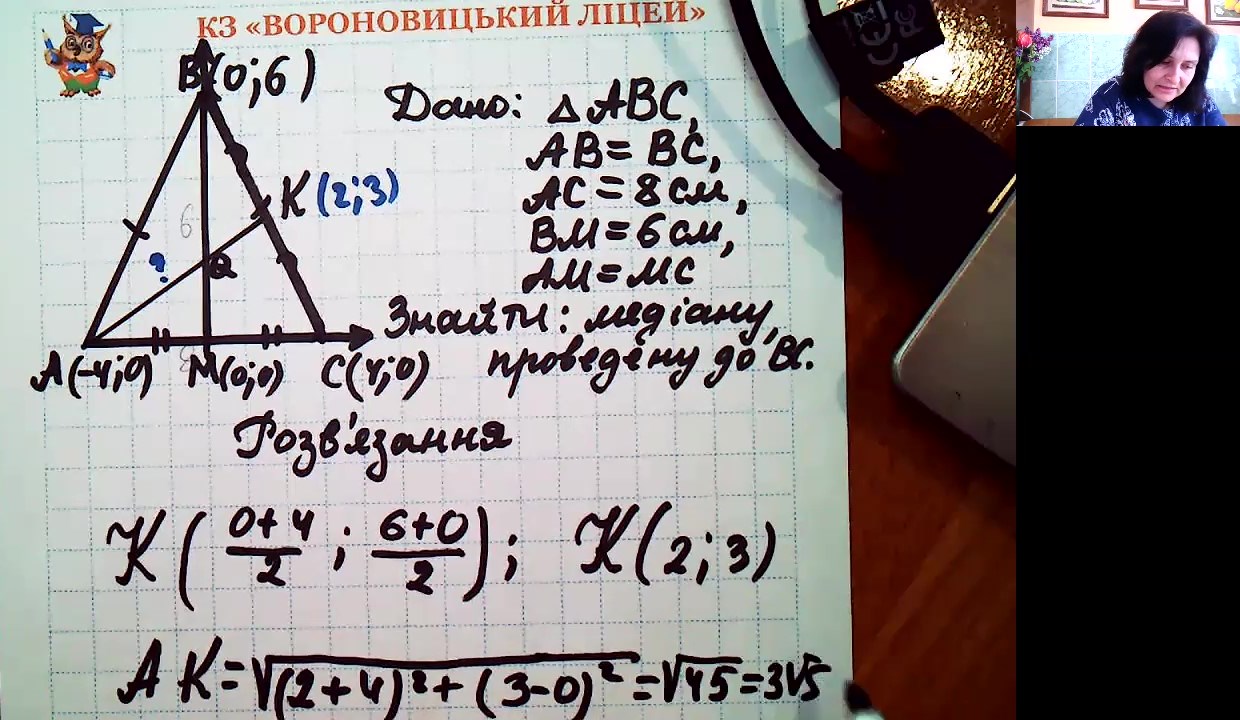 КЗ «ВОРОНОВИЦЬКИЙ ЛІЦЕЙ»
B(0;6)
Дано: △ABC,
AB = BC,
AC = 8 см,
BM = 6 см,
AM = MC
K (2;3)
6
?
Q
A(-4;0) M(0;0) C(4;0)
Знайти: медіану,
проведену до BC.
Розв'язання
K ( 0+4/2 ; 6+0/2 ); K (2;3)
AK = √(2+4)² + (3-0)² = √45 = 3√5